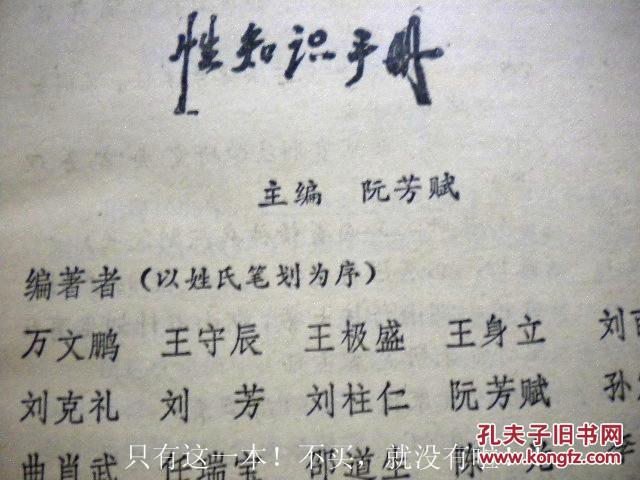 性知识手册
主编 阮芳赋
编著者（以姓氏笔划为序）
万文鹏 王守辰 王极盛 王身立 刘
刘克礼 刘芳 刘柱仁 阮芳赋 孙
曲肖武 任瑞宝 邵道生 陈
只有这一本！不买，就没有啦
孔夫子旧书网
KONGFZ.COM